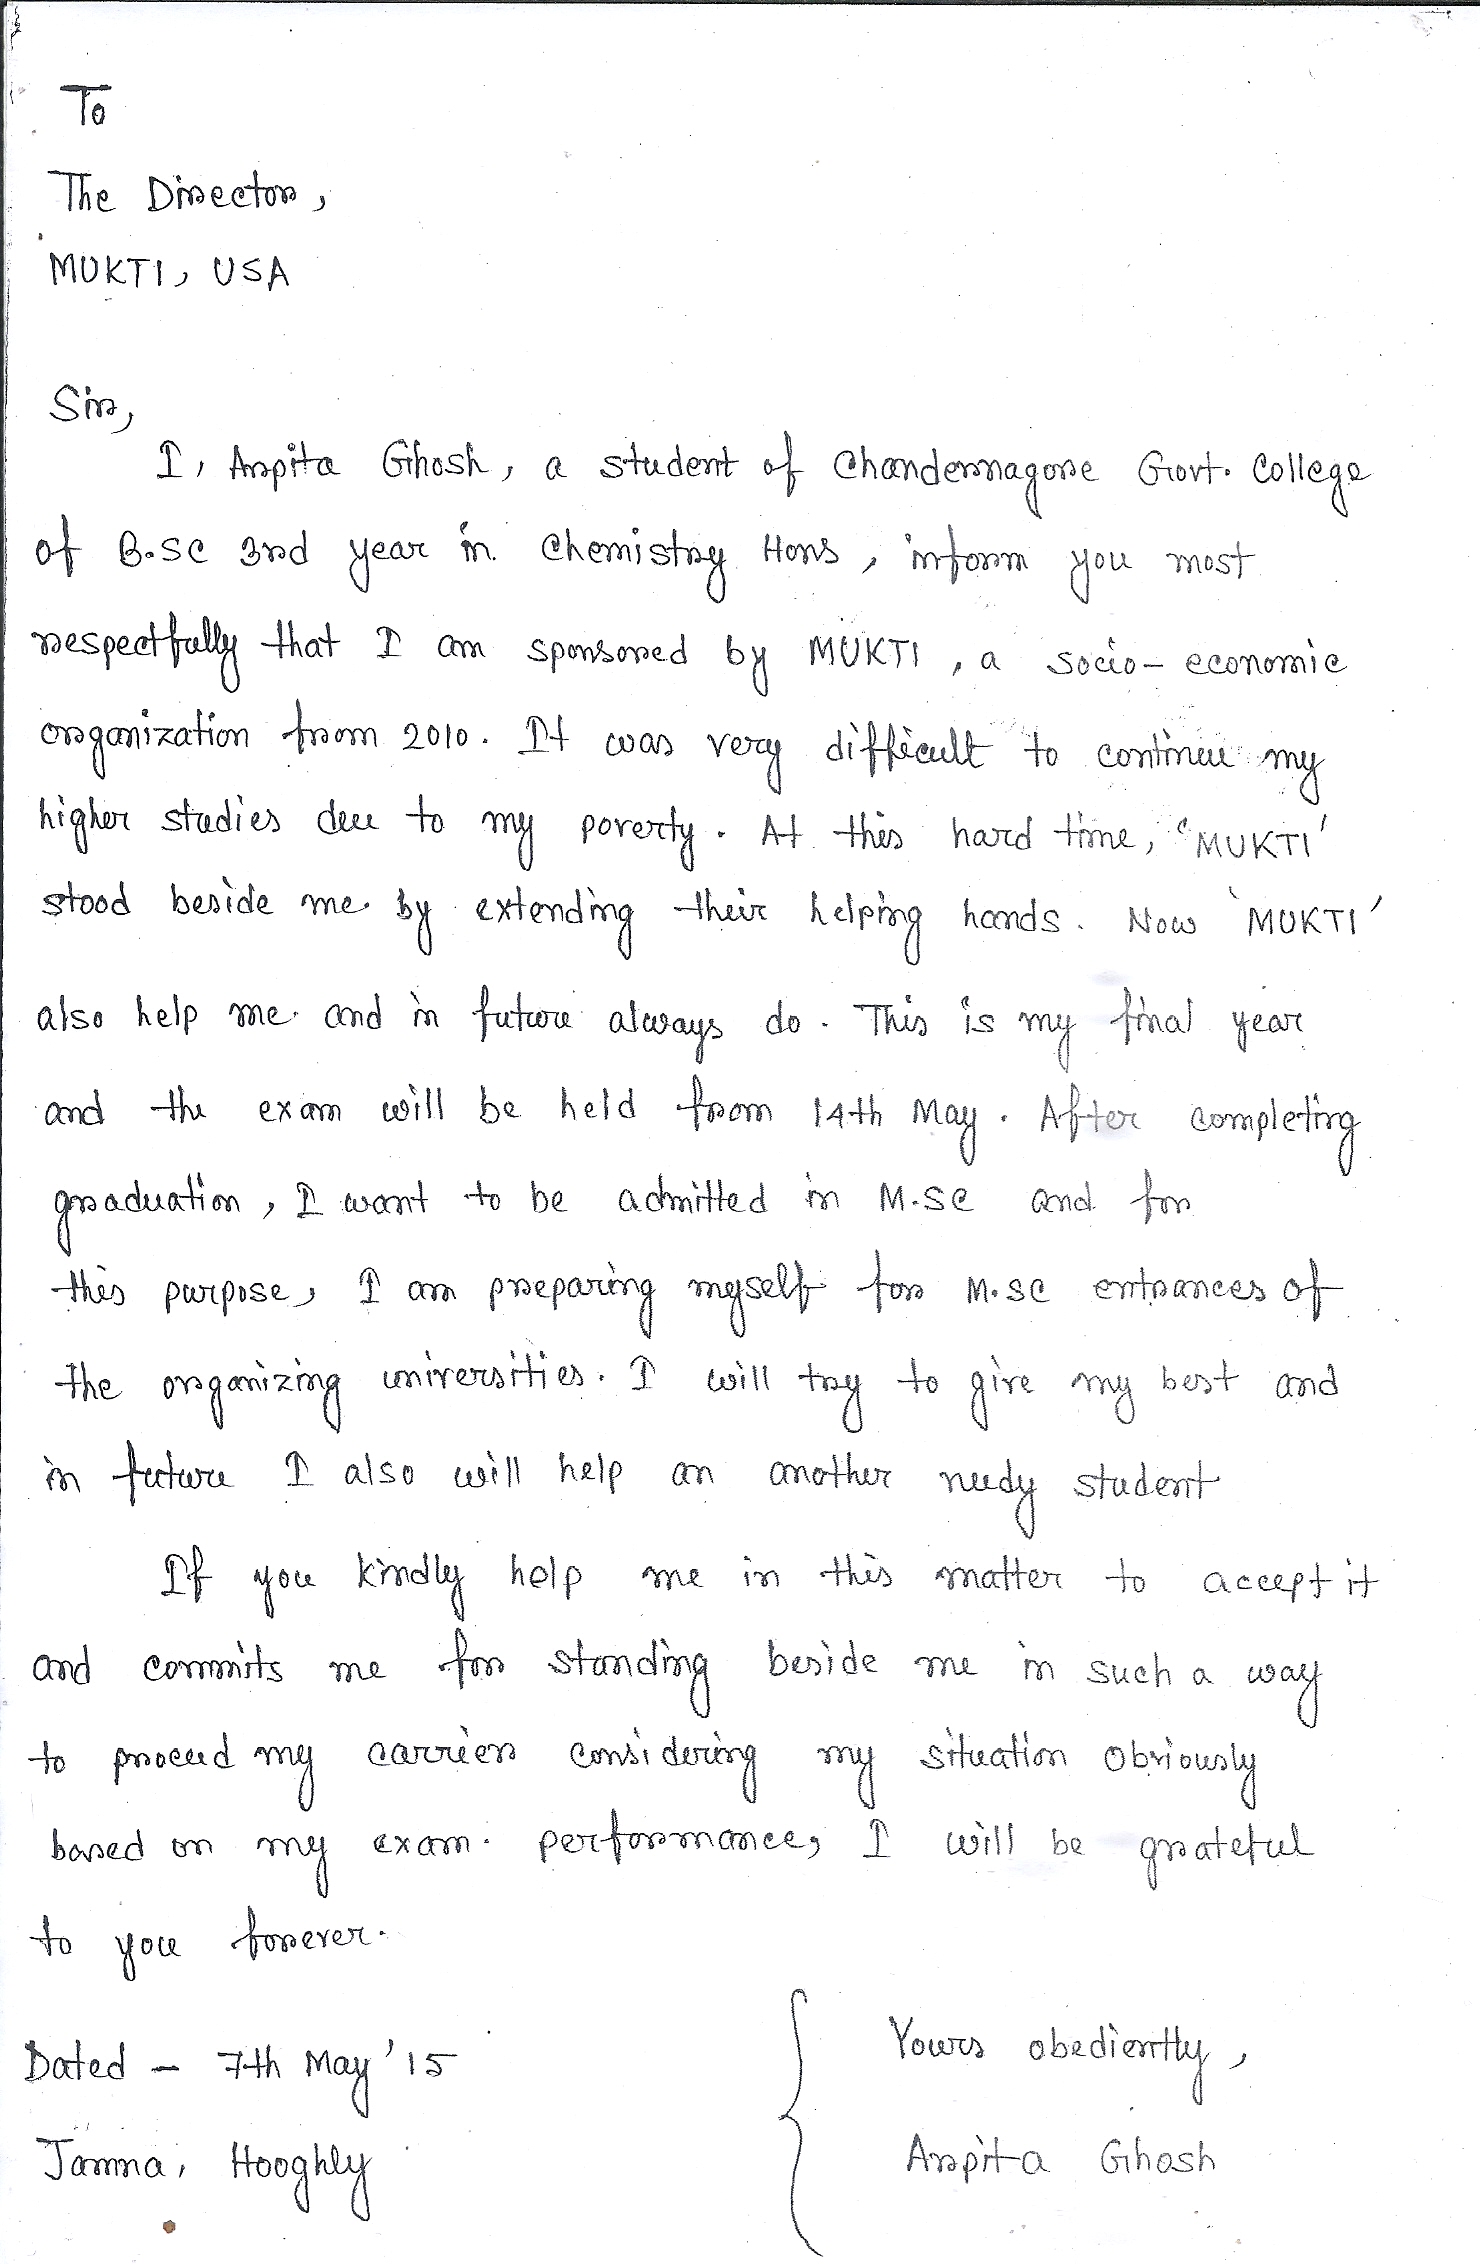 To
The Director,
MUKTI, USA
Sir,
I, Arpita Ghosh, a student of Chandernagore Govt. College
of B.Sc 3rd year in Chemistry Hons, inform you most
respectfully that I am sponsored by MUKTI, a socio-economic
organization from 2010. It was very difficult to continue my
higher studies due to my poverty. At this hard time, 'MUKTI'
stood beside me by extending their helping hands. Now 'MUKTI'
also help me and in future always do. This is my final year
and the exam will be held from 14th May. After completing
graduation, I want to be admitted in M.Sc and for
this purpose, I am preparing myself for M.Sc entrances of
the organizing universities. I will try to give my best and
in future I also will help an another needy student
If you kindly help me in this matter to accept it
and commits me for standing beside me in such a way
to proceed my carrier considering my situation obviously
based on my exam. performance, I will be grateful
to you forever.
Dated - 7th May '15
Yours obediently,
Jamna, Hooghly
Arpita Ghosh